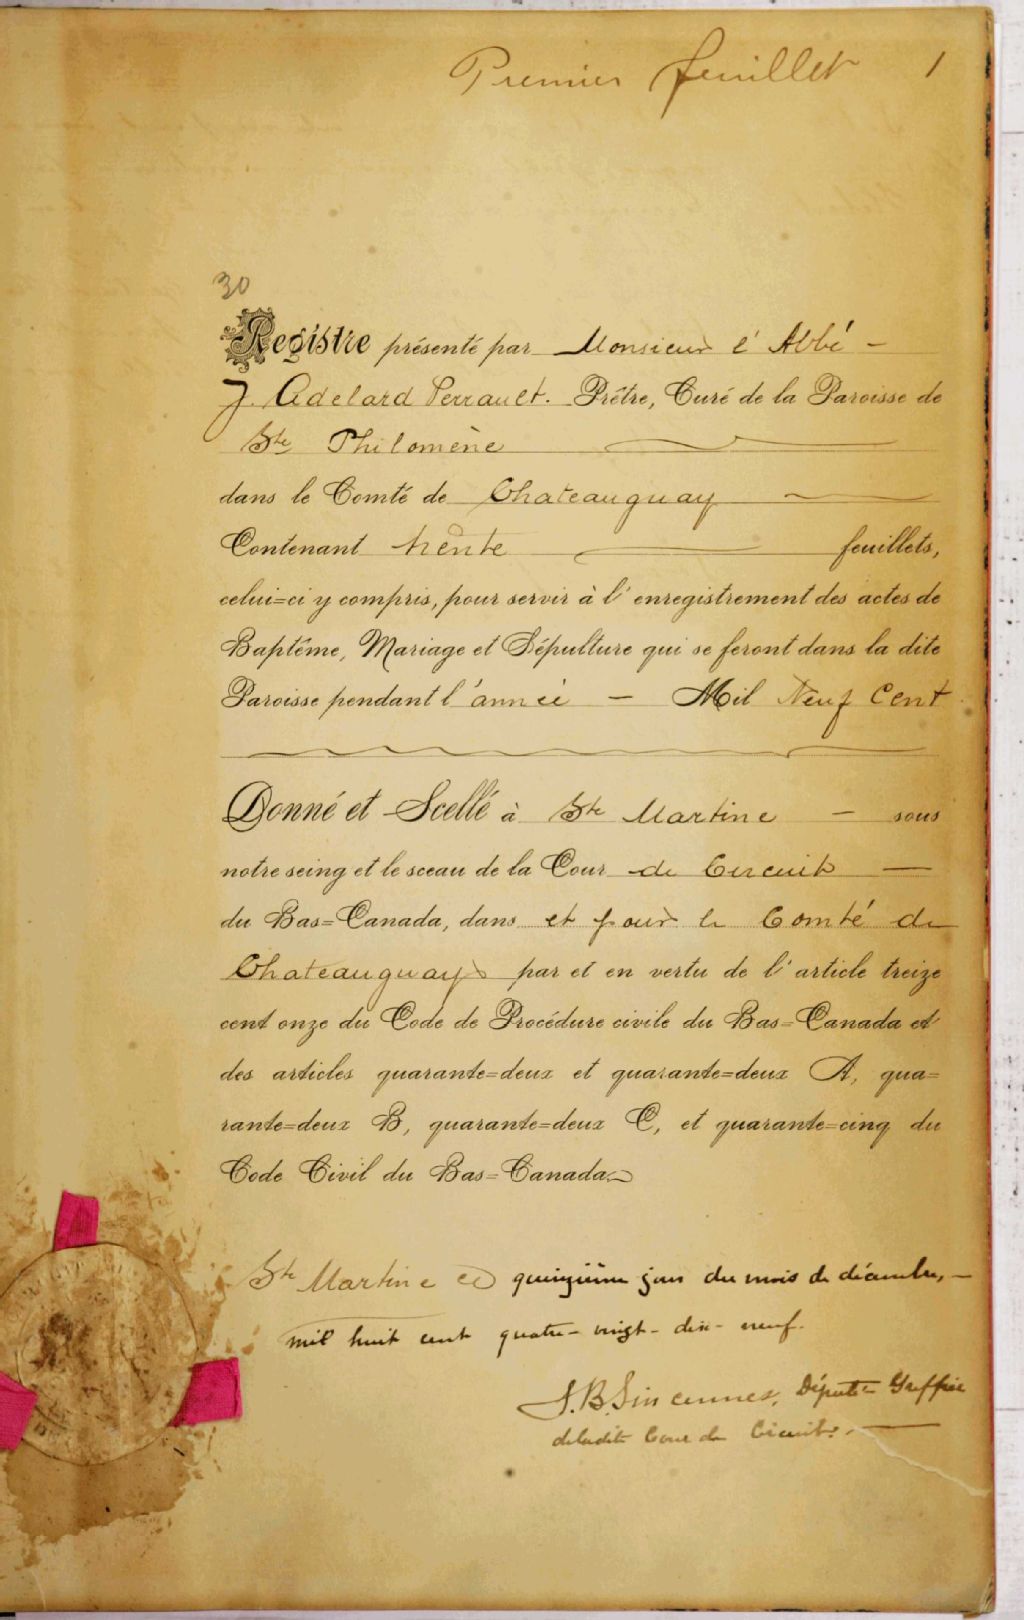 Premier feuillet 1
30
Registre présenté par Monsieur l'Abbé -
J. Adelard Perrault. Prêtre, Curé de la Paroisse de
Ste Philomène
dans le Comté de Chateauguay
Contenant trente feuillets,
celui=ci y compris, pour servir à l'enregistrement des actes de
Baptême, Mariage et Sépulture qui se feront dans la dite
Paroisse pendant l'année - Mil Neuf Cent
Donné et Scellé à Ste Martine - sous
notre seing et le sceau de la Cour de Circuit —
du Bas=Canada, dans et pour le Comté de
Chateauguay par et en vertu de l'article treize
cent onze du Code de Procédure civile du Bas=Canada et
des articles quarante=deux et quarante=deux A, qua=
rante=deux B, quarante=deux C, et quarante=cinq du
Code Civil du Bas=Canada.
Ste Martine ce quinzième jour du mois de décembre, —
mil huit cent quatre-vingt-dix-neuf.
Député Greffier
de ladite Cour de Circuit. —